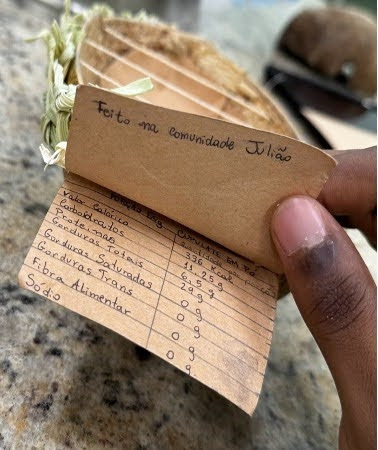 Feito na comunidade Julião
Porção 60g
Quantidade por porção
Valor Calórico 336 Kcal
Carboidratos 11.25g
Proteínas 6.5g
Gorduras Totais 29g
Gorduras Saturadas 0g
Gorduras Trans 0g
Fibra Alimentar 0g
Sódio 0g